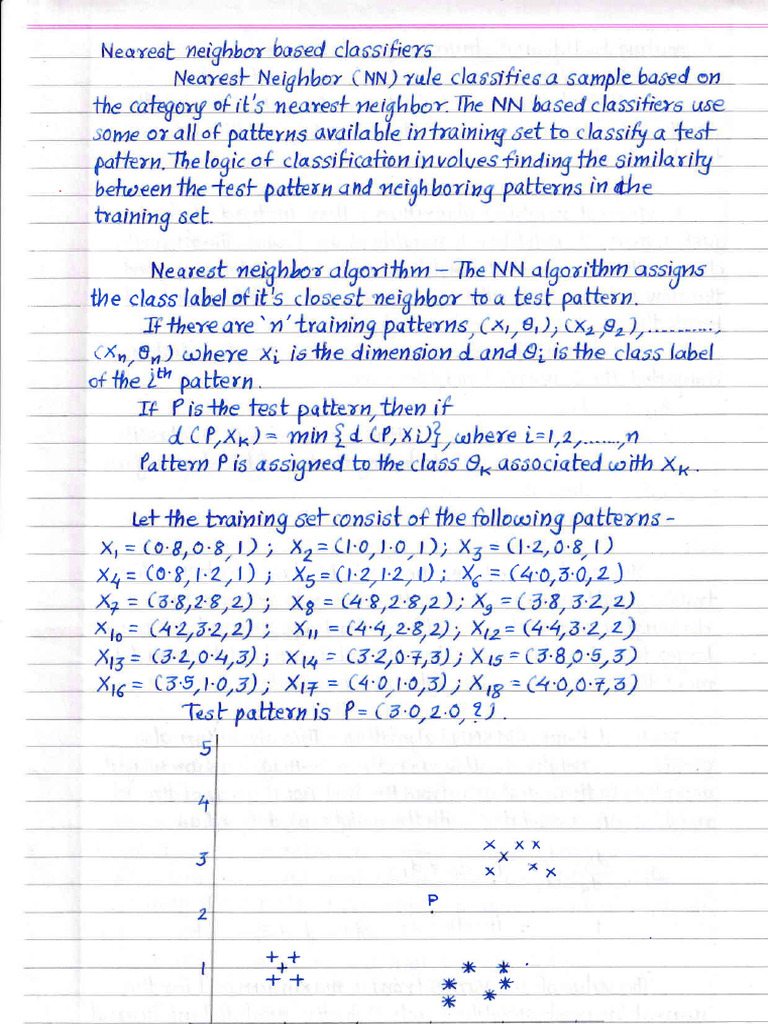 Nearest neighbor based classifiers
Nearest Neighbor (NN) rule classifies a sample based on
the category of it's nearest neighbor. The NN based classifiers use
some or all of patterns available in training set to classify a test
pattern. The logic of classification involves finding the similarity
between the test pattern and neighboring patterns in the
training set.
Nearest neighbor algorithm – The NN algorithm assigns
the class label of it's closest neighbor to a test pattern.
If there are 'n' training patterns, (X₁, θ₁); (X₂, θ₂), ..........,
(Xₙ, θₙ) where Xᵢ is the dimension d and θᵢ is the class label
of the iᵗʰ pattern.
If P is the test pattern, then if
d (P, Xₖ) = min {d (P, Xi)}, where i=1,2,......,n
Pattern P is assigned to the class θₖ associated with Xₖ.
Let the training set consist of the following patterns –
X₁ = (0.8, 0.8, 1) ; X₂ = (1.0, 1.0, 1); X₃ = (1.2, 0.8, 1)
X₄ = (0.8, 1.2, 1) ; X₅ = (1.2, 1.2, 1) ; X₆ = (4.0, 3.0, 2)
X₇ = (3.8, 2.8, 2) ; X₈ = (4.8, 2.8, 2) ; X₉ = (3.8, 3.2, 2)
X₁₀ = (4.2, 3.2, 2) ; X₁₁ = (4.4, 2.8, 2) ; X₁₂ = (4.4, 3.2, 2)
X₁₃ = (3.2, 0.4, 3) ; X₁₄ = (3.2, 0.7, 3) ; X₁₅ = (3.8, 0.5, 3)
X₁₆ = (3.5, 1.0, 3) ; X₁₇ = (4.0, 1.0, 3) ; X₁₈ = (4.0, 0.7, 3)
Test pattern is P = (3.0, 2.0, ?).
5
4
3
P
2
1